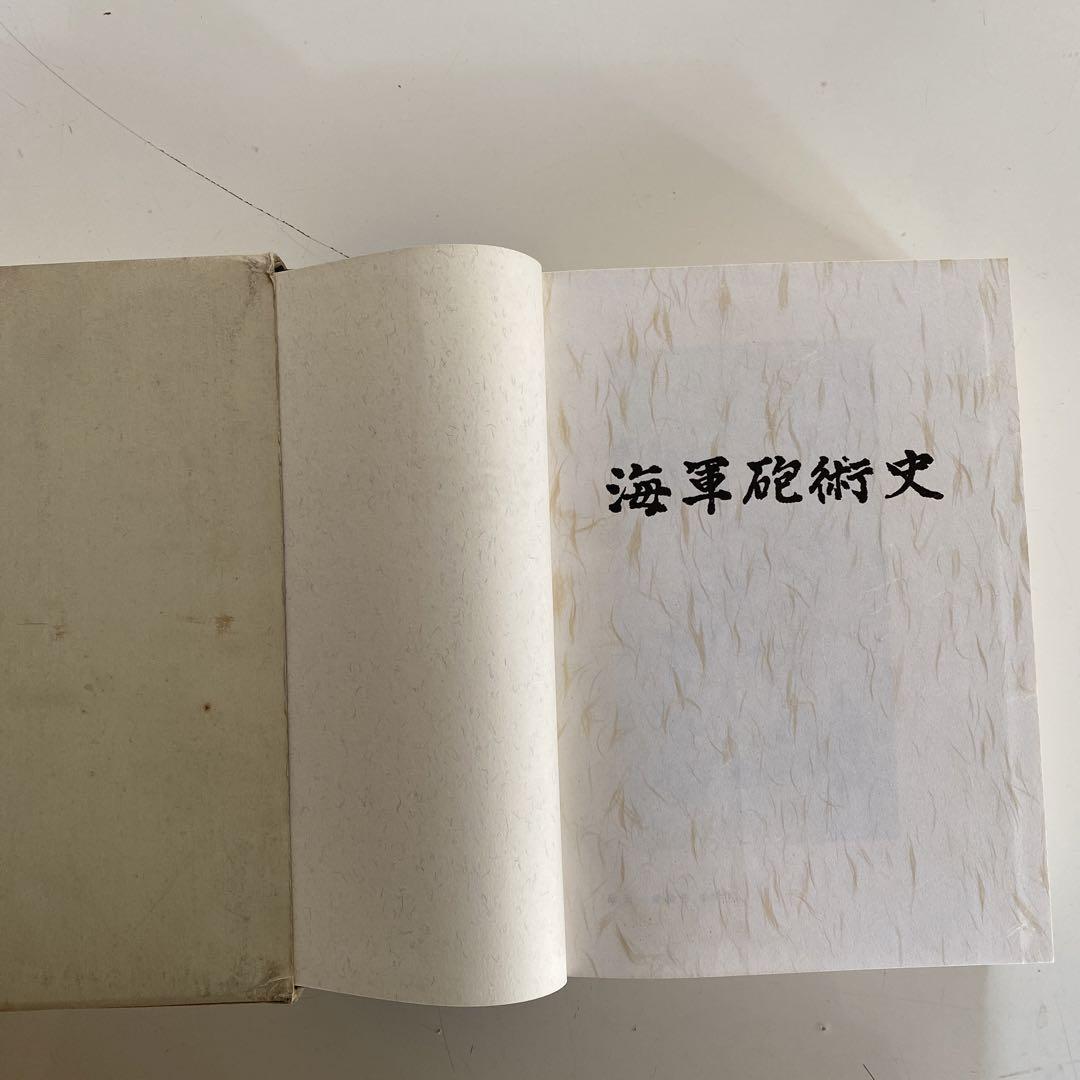 海軍砲術史